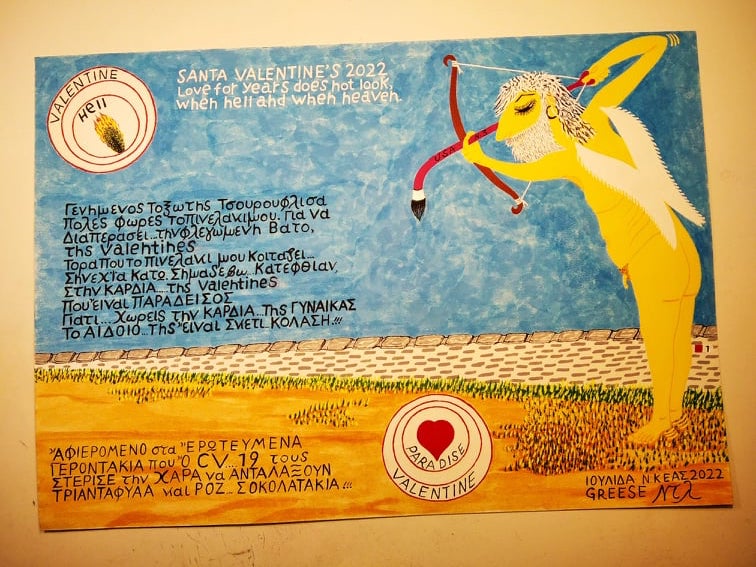 VALENTINE
Hell
SANTA VALENTINE'S 2022
Love for years does not look,
when hell and when heaven.
USA N.T
Γενημενος Τοξωτης Τσουρουφλισα
πολες φωρες το πινελακι μου. Για να
Διαπερασει... την φλεγωμενη Βατο,
της Valentines
Τορα που το πινελακι μου Κοιταζει...
Συνεχια Κατω. Σημαδεβω... Κατεφθιαν,
Στην ΚΑΡΔΙΑ... της Valentines
που'ειναι ΠΑΡΑΔΕΙΣΟΣ
Γιατι... Χωρεις την ΚΑΡΔΙΑ... της ΓΥΝΑΙΚΑΣ
Το ΑΙΔΟΙΟ... της 'ειναι ΣΚΕΤΙ ΚΟΛΑΣΗ.!!!
PARADISE
VALENTINE
'ΑΦΙΕΡΟΜΕΝΟ στα 'ΕΡΩΤΕΥΜΕΝΑ
ΓΕΡΟΝΤΑΚΙΑ που Ο CV...19 τους
ΣΤΕΡΙΣΕ την ΧΑΡΑ να ΑΝΤΑΛΑΞΟΥΝ
ΤΡΙΑΝΤΑΦΥΛΑ και ΡΟΖ... ΣΟΚΟΛΑΤΑΚΙΑ!!!
ΙΟΥΛΙΔΑ Ν.ΚΕΑΣ 2022
GREESE